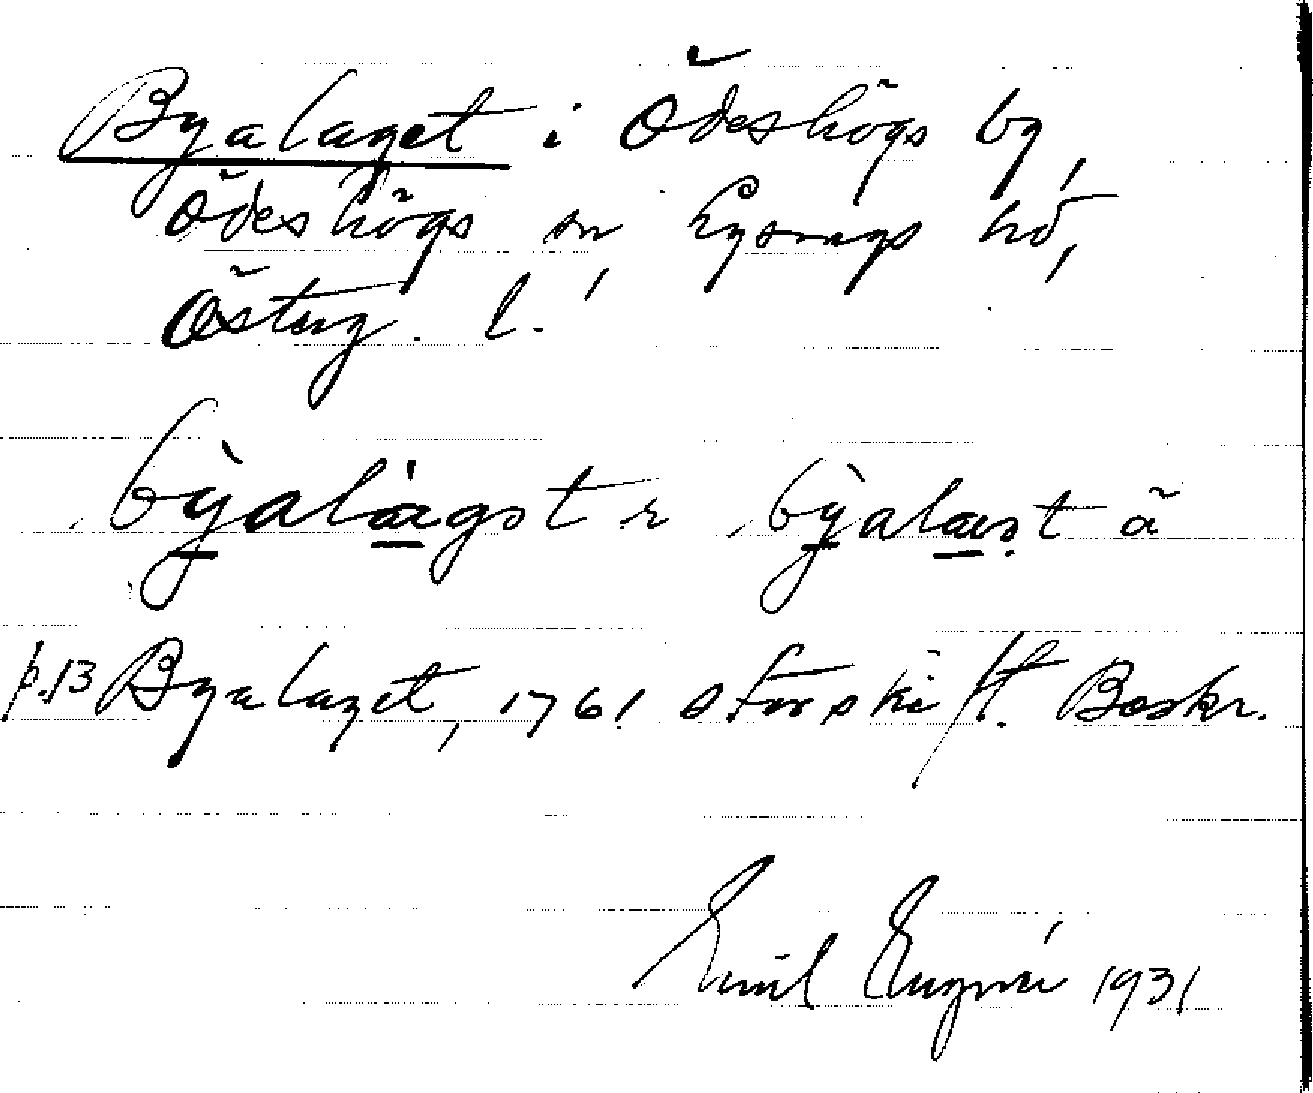 Byalaget i Ödeshögs by,
Ödeshögs sn Lysings hd,
Österg. l.
byalagət r byalast ä
p.13 Byalaget, 1761 storskift. Beskr.
Emil 1931